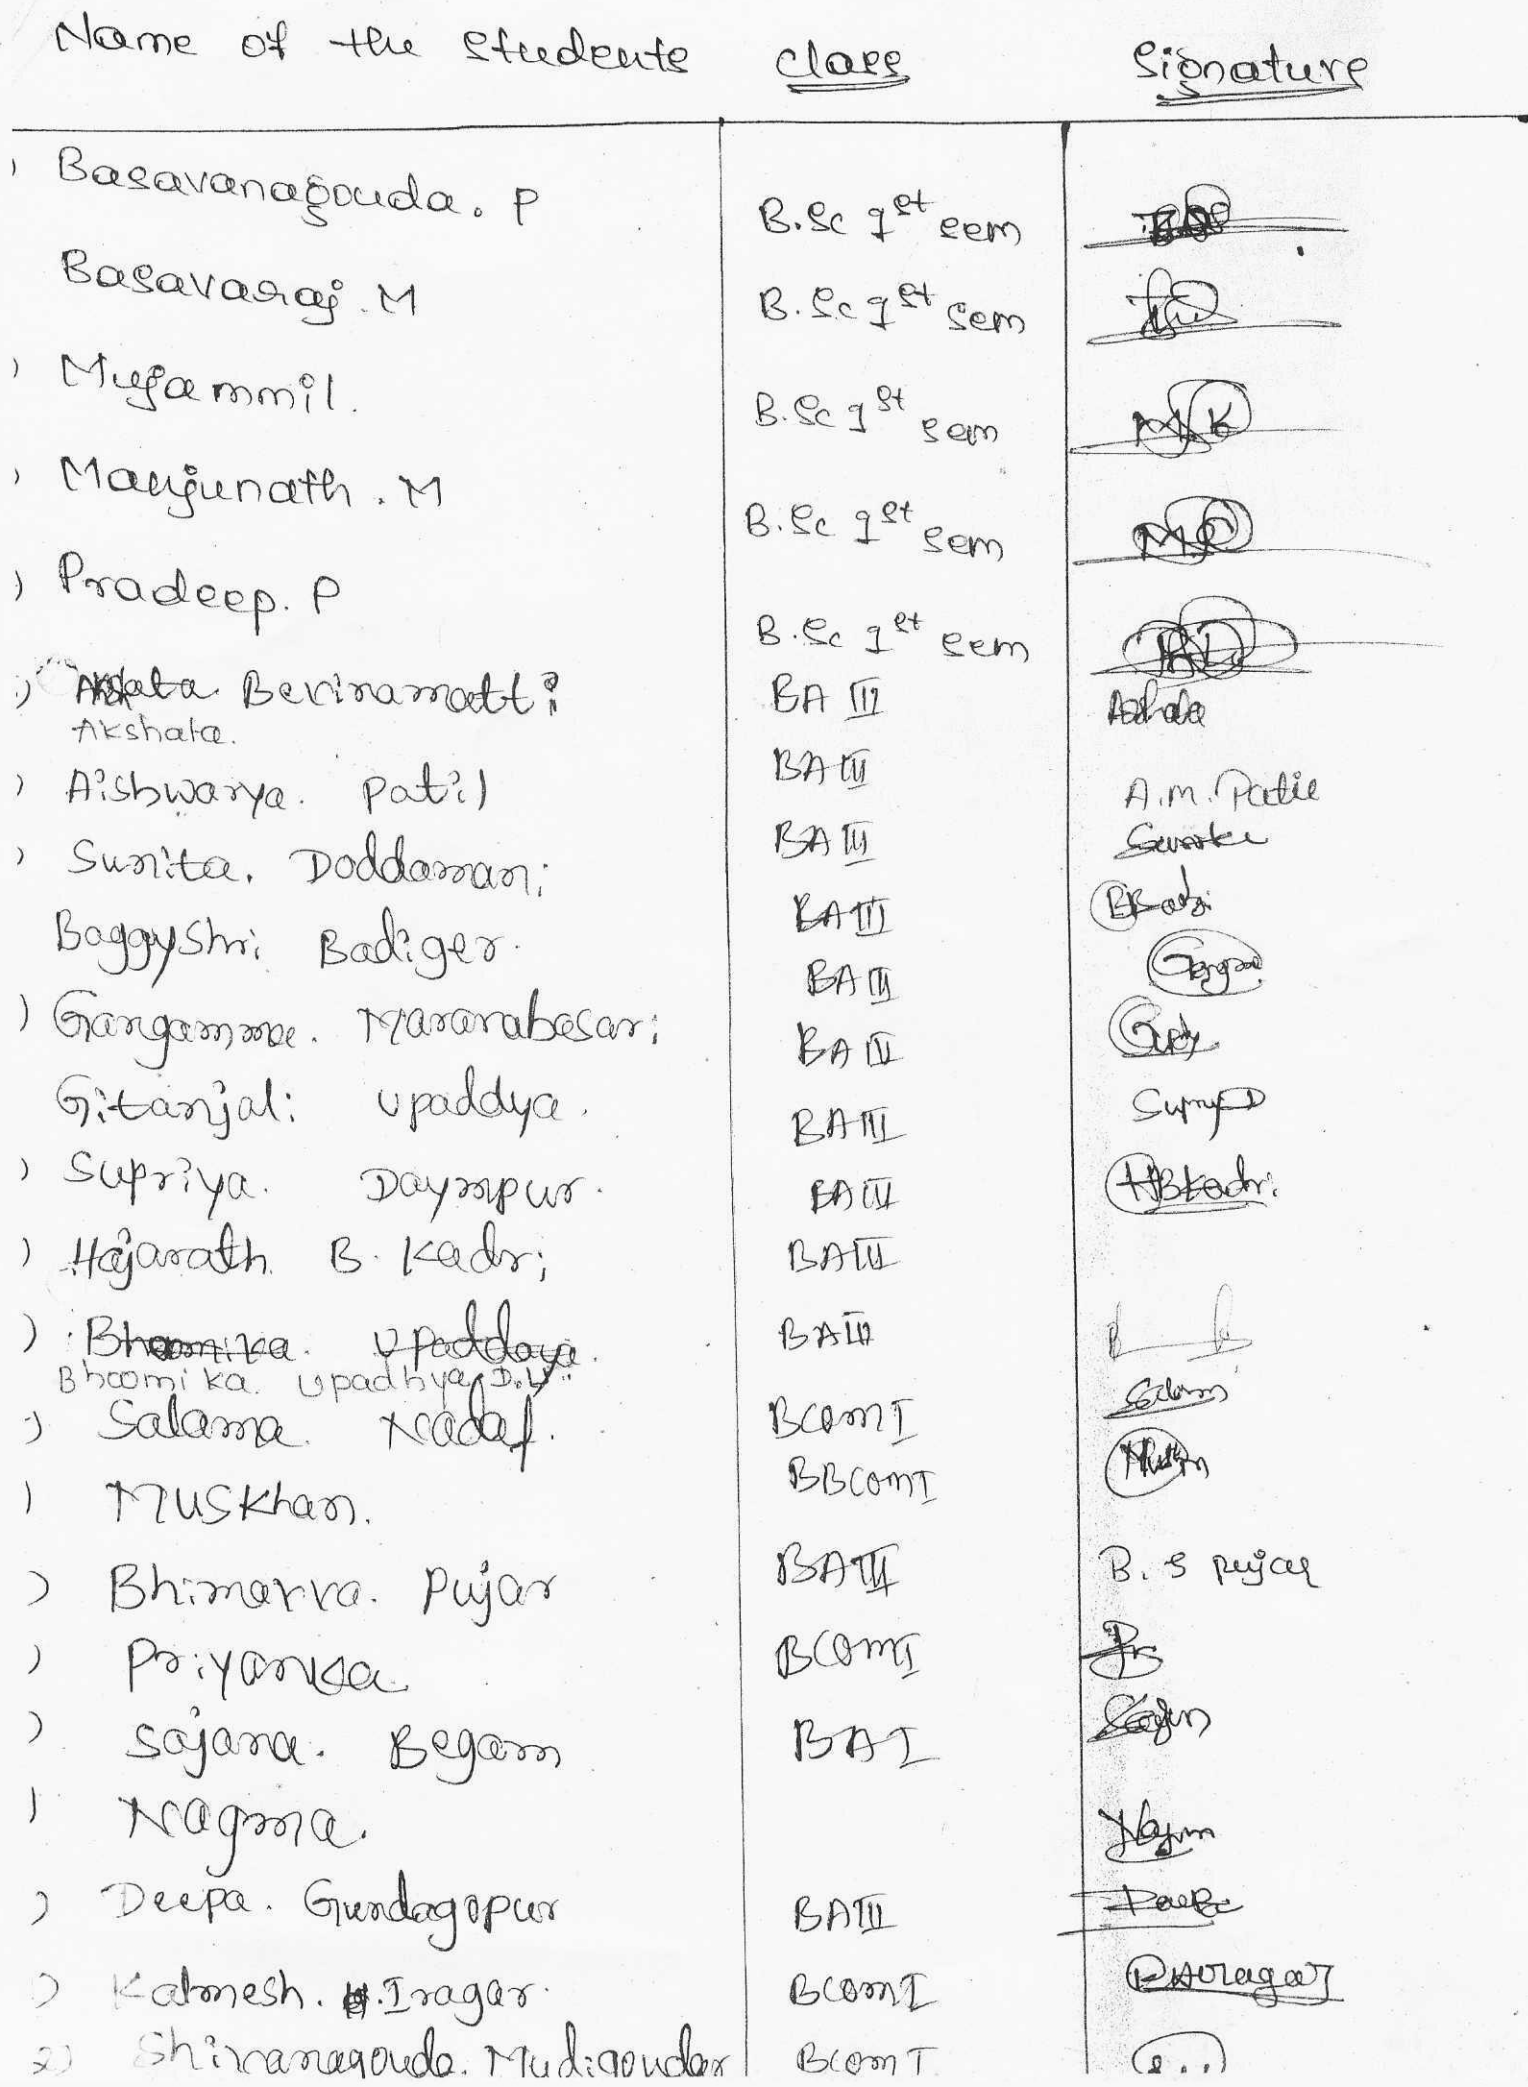 Name of the Students Class Signature
) Basavanagouda. P B.Sc 1st sem
Basavaraj. M B.Sc 1st Sem
) Mujammil. B.Sc 1st sem M K
) Manjunath. M B.Sc 1st sem
) Pradeep. P B.Sc 1st sem
) Bevinamatti BA III
Akshata.
) Aishwarya. Patil BA III A.M. Patil
) Sunita. Doddamani BA III
Baggyshri Badiger. BA III
) Gangamma. Maranabasari BA III
Gitanjali Upaddya. BA III
) Supriya. Daympur. BA III
) Hajarath B. Kadri BA III HBKadri
) Bhoomika. Upaddaya. BA III
Bhoomika. Upadhya. D.U
) Salama. Nadaf. BCOM I
) Muskhan. BBCOM I
) Bhimavva. Pujar BA III B. S Pujar
) Priyanka BCOM I
) Sajana. Begam BA I
) Nagma.
) Deepa. Gundagopur BA III
) Kalmesh. H. Iragar. BCOM I
2) Shivanagouda. Mudigoudar BCOM I